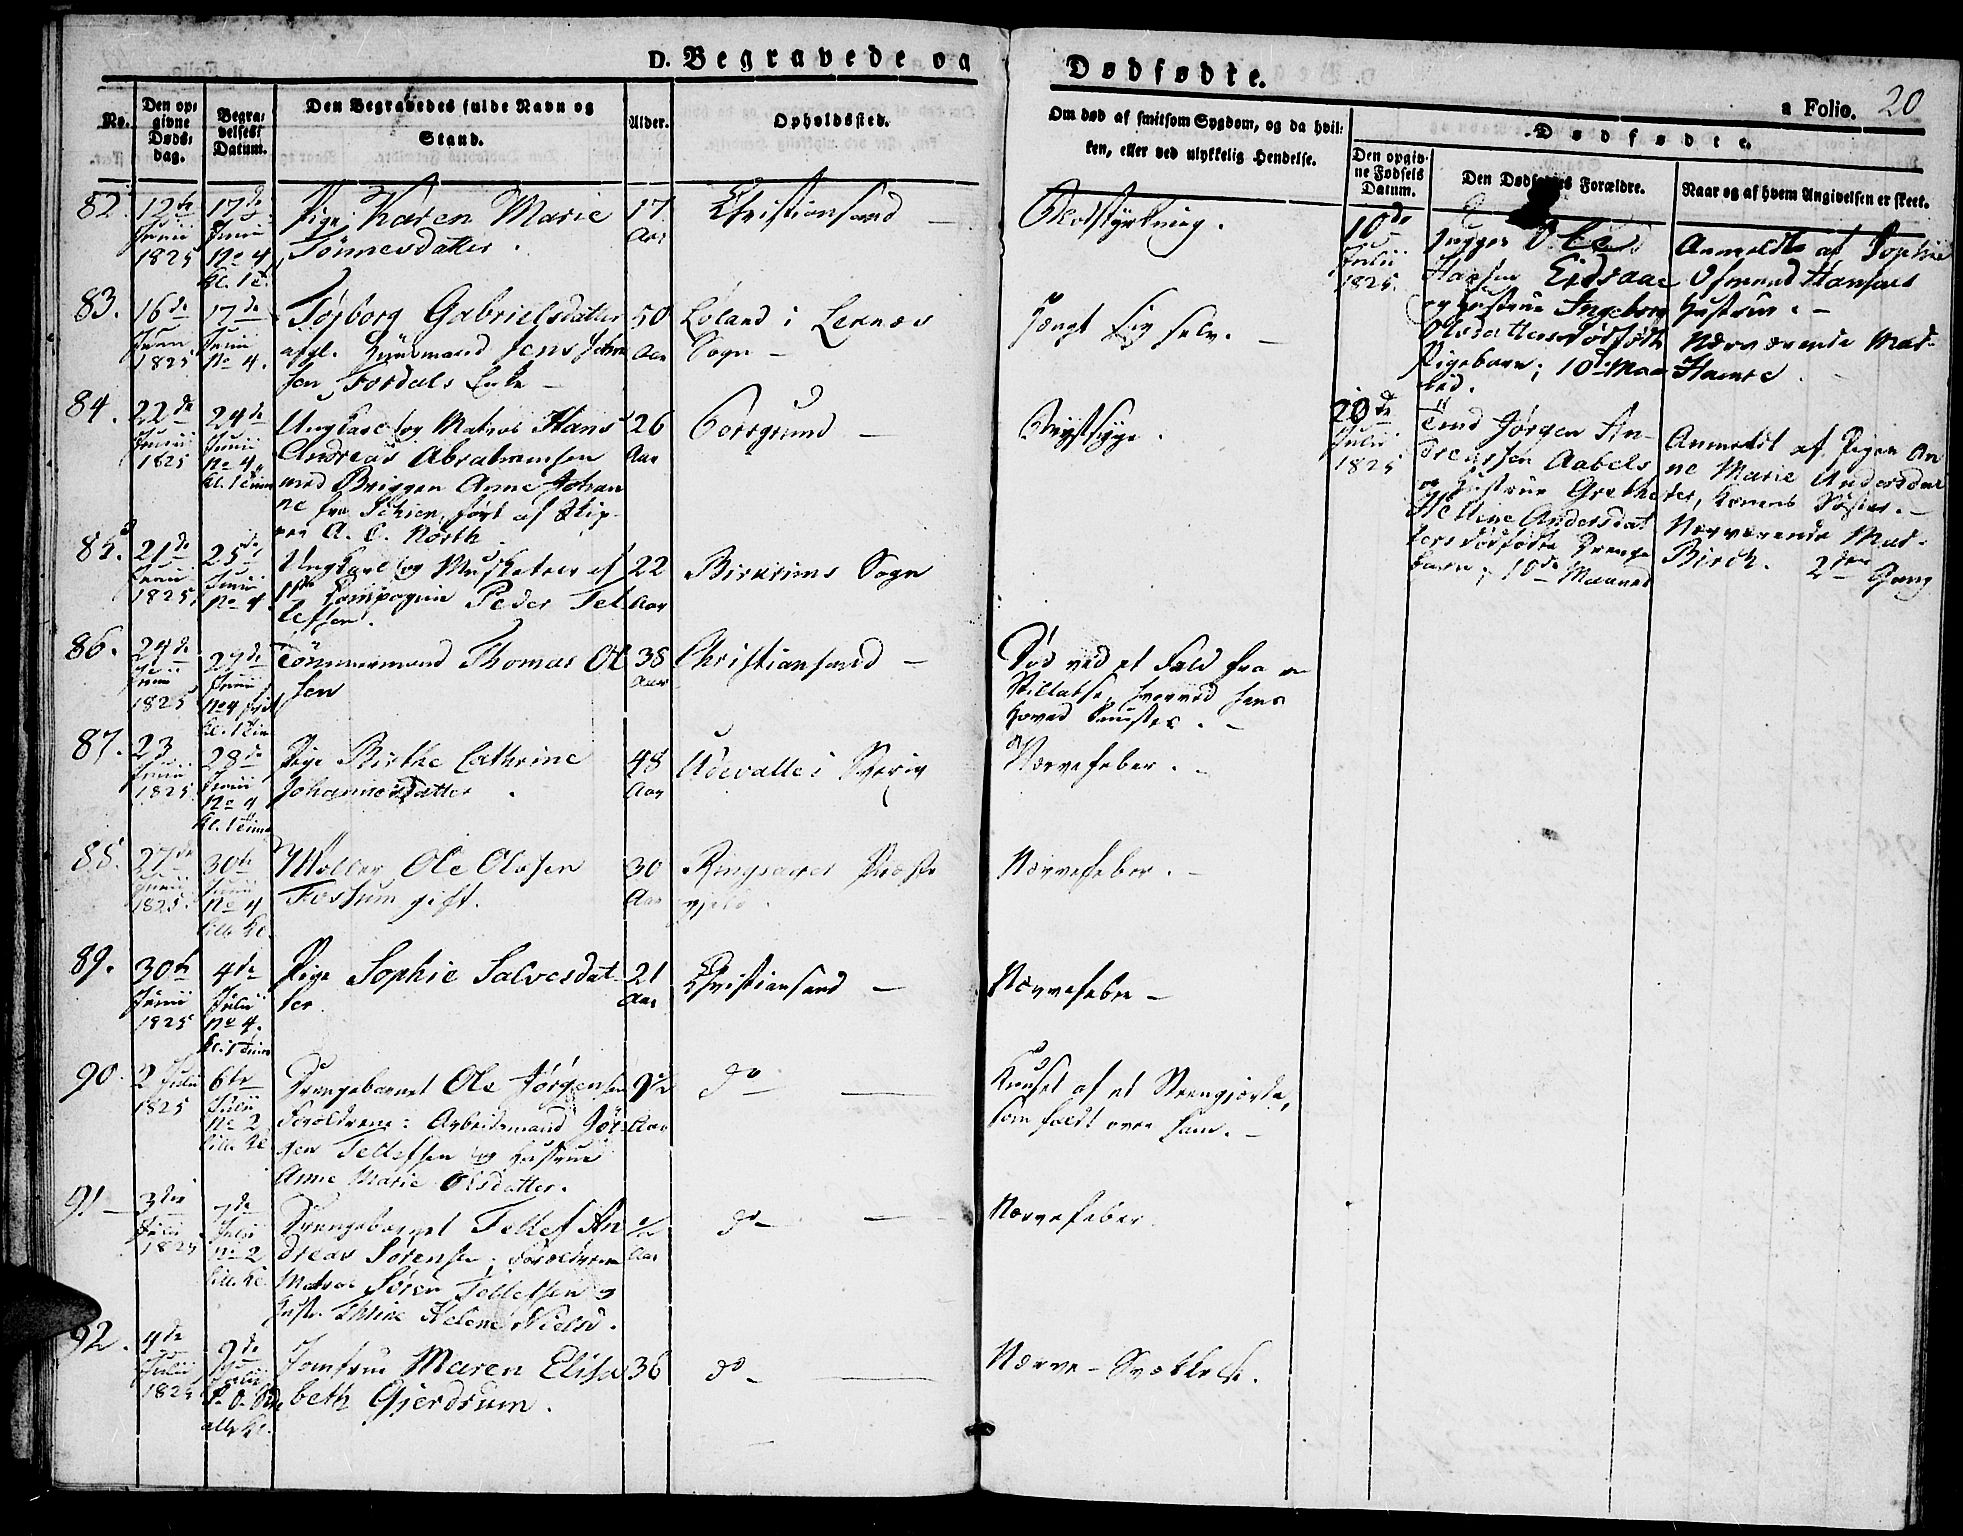 D. Begravede og
Dødfødte.
a Folio. 20
No.
Den op-
givne
Døds-
dag.
Begra-
velses-
Datum.
Den Begravedes fulde Navn og
Stand.
Alder.
Opholdssted.
Om død af smitsom Sygdom, og da hvil-
ken, eller ved ulykkelig Hendelse.
Dødfødte.
Den opgiv-
ne Fødsels
Datum.
Den Dødfødtes Forældre.
Naar og af hvem Angivelsen er skeet.
82.
12te
Junii
1825
17de
Junii
No 4
Kl. 1 E.
Pige Karen Marie
Tönnesdatter.
17
Aar
Christiansand —
83.
16de
Junii
1825
17de
Junii
No 4.
Torborg Gabrielsdatter
afgl. Huusmand Jens
sen Fosdals Enke —
50
Aar
Loland i
Sogn —
84.
22de
Junii
1825
24de
Junii
No 4.
Ungkarl og Matros Hans
Andreas Abrahamsen
med Briggen Anne Johan
ne fra Schien, ført af Skip-
per A. C. North
26
Aar
Porsgrund —
Brystsyge.
85.
21de
Junii
1825
25de
Junii
No 4
Ungkarl og Musketeer af
Compagnie Peder Tel
lefsen.
22
Aar
Birkrims Sogn
86.
24de
Junii
1825
27de
Junii
No 4
Tömmermand Thomas Ol
sen
38
Aar
Christiansand —
Død ved et Fald fra en
Stilladse, hvorved hans
Hoved knustes. —
87.
23
Junii
1825.
28de
Junii
No 4
Pige Birthe Cathrine
Johannesdatter.
48
Aar
Udevalle i Sverig
Nervefeber. —
88.
27de
Junii
1825.
30te
Junii
No 4
lille Kl.
Möller Ole Olesen
Fossum gift.
30
Aar
Ringsager Præste
gjeld.
Nervefeber. —
89.
30te
Junii
1825
4de
Julii
No 4.
Pige Sophie Salvesdat
ter
21
Aar
Christiansand —
Nervefeber —
90.
2 Julii
1825
6te
Julii
No 2
lille Kl
Drengebarnet Ole Jörgensen
Forældrene: Arbeidsmand Jör-
gen Tellefsen og Hustrue
Anne Marie Olsdatter.
9½
Aar
do —
Knuset af et Steengjerde,
som faldt over ham. —
91 —
3die
Julii
1825
7de
Julii
No 2
lille Kl.
Drengebarnet Tellef An
dreas Sörensen; Forældrene
Matros Sören Tellefsen og
Hustr. Helene Nielsd.
½
Aar
do —
Nervefeber
92.
4de
Julii
1825
9de
Julii
alle Kl.
Jomfrue Maren Elisa
beth Gjerdrum.
36
do —
Nerve-Svækkelse.
10de
Julii
1825.
Ole
Hansen Eidsaae
og Hustrue Ingeborg
Olsdatters dødfødte
Pigebarn; 10de Maa
ned.
Anmeldt af Sophie
Osmund Hansens
Hustrue. —
Nærværende Mad.
Hamre.
20de
Julii
1825
Jørgen An-
dreassen Aabels
og Hustrue Grethe
Helene Andersdat
ters dødfødte Drenge
barn; 10de Maaned
Anmeldt af Pigen An
ne Marie Andersdat
ter, Konens Søster. —
Nærværende Mad.
Birch. 2den Gang